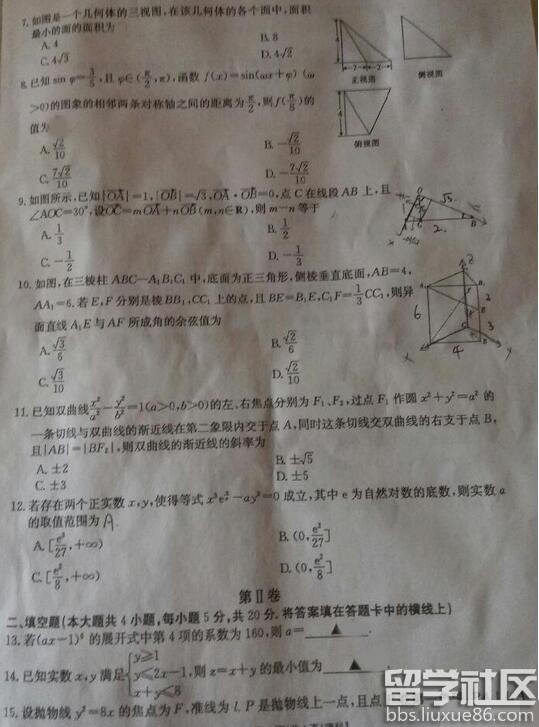 7. 如图是一个几何体的三视图,在该几何体的各个面中,面积
最小的面的面积为
A. 4 B. 8
C. 4√3 D. 4√2
4 2 2
正视图 侧视图
4
俯视图
8. 已知 sin φ=3/5,且 φ∈(π/2,π),函数 f(x)=sin(ωx+φ) (ω
>0)的图象的相邻两条对称轴之间的距离为π/2,则f(π/8)的
值为
A. √2/10 B. -√2/10
C. 7√2/10 D. -7√2/10
9. 如图所示,已知|OA|=1,|OB|=√3,OA·OB=0,点 C 在线段 AB 上,且
∠AOC=30°,设OC=mOA+nOB(m,n∈R),则 m-n 等于
A. 1/3 B. 1/2
C. -1/2 D. -1/3
10. 如图,在三棱柱 ABC—A₁B₁C₁ 中,底面为正三角形,侧棱垂直底面,AB=4,
AA₁=6. 若 E,F 分别是棱 BB₁,CC₁ 上的点,且 BE=B₁E,C₁F=1/3 CC₁,则异
面直线 A₁E 与 AF 所成角的余弦值为
A. √3/6 B. √2/6
C. √3/10 D. √2/10
6 4 3 2 x y z
11. 已知双曲线x²/a²-y²/b²=1(a>0,b>0)的左、右焦点分别为 F₁、F₂,过点 F₁ 作圆 x²+y²=a² 的
一条切线与双曲线的渐近线在第二象限内交于点 A,同时这条切线交双曲线的右支于点 B,
且|AB|=|BF₂|,则双曲线的渐近线的斜率为
A. ±2 B. ±√5
C. ±3 D. ±5
12. 若存在两个正实数 x,y,使得等式 x³e^(y/x)-ay³=0 成立,其中 e 为自然对数的底数,则实数 a
的取值范围为 A
A. [e³/27,+∞) B. (0,e³/27]
C. [e²/8,+∞) D. (0,e²/8]
第Ⅱ卷
二、填空题(本大题共 4 小题,每小题 5 分,共 20 分. 将答案填在答题卡中的横线上)
13. 若(ax-1)⁶ 的展开式中第 4 项的系数为 160,则 a= ▲ .
14. 已知实数 x,y 满足{y≥1 y≤2x-1,则 z=x+y 的最小值为 ▲
x+y≤8
15. 设抛物线 y²=8x 的焦点为 F,准线为 l. P 是抛物线上一点,且点
留学社区
bbs.liuxue86.com